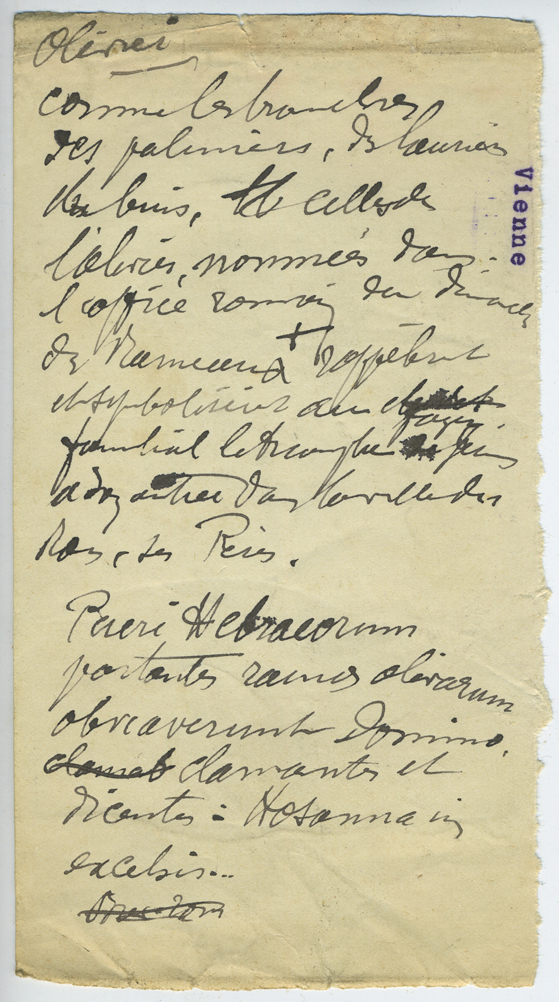 Olivier
comme les branches
des palmiers, de laurier
de buis, et celles de
l'olivier, nommées dans
l'office romain du dimanche
des Rameaux + rappellent
et symbolisent au foyer
familial le triomphe de Jésus
à son entrée dans la ville des
Rois, ses Pères.
Pueri Hebraeorum
portantes ramos olivarum
obviaverunt Domino,
clamantes et
dicentes : Hosanna in
excelsis...
Vienne